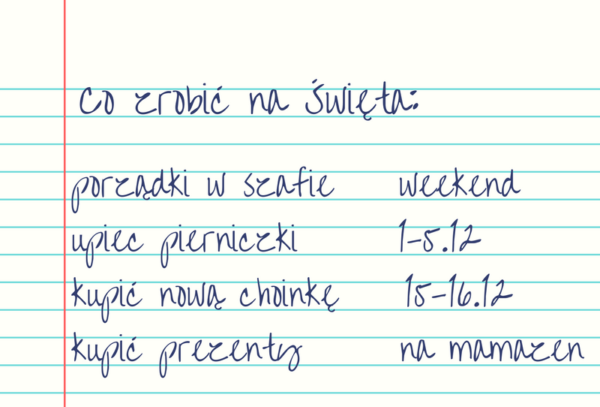 Co zrobić na Święta:
porządki w szafie weekend
upiec pierniczki 1-5.12
kupić nową choinkę 15-16.12
kupić prezenty na mamazen